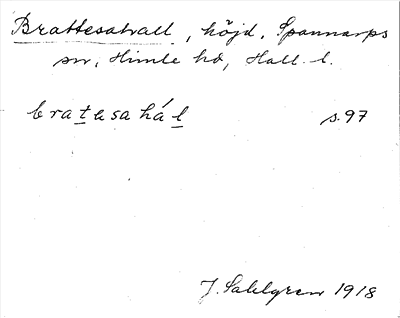 Brattesahall, höjd, Spannarps
sn, Himle hd, Hall. l.
bratesahál s. 97
J. Sahlgren 1918